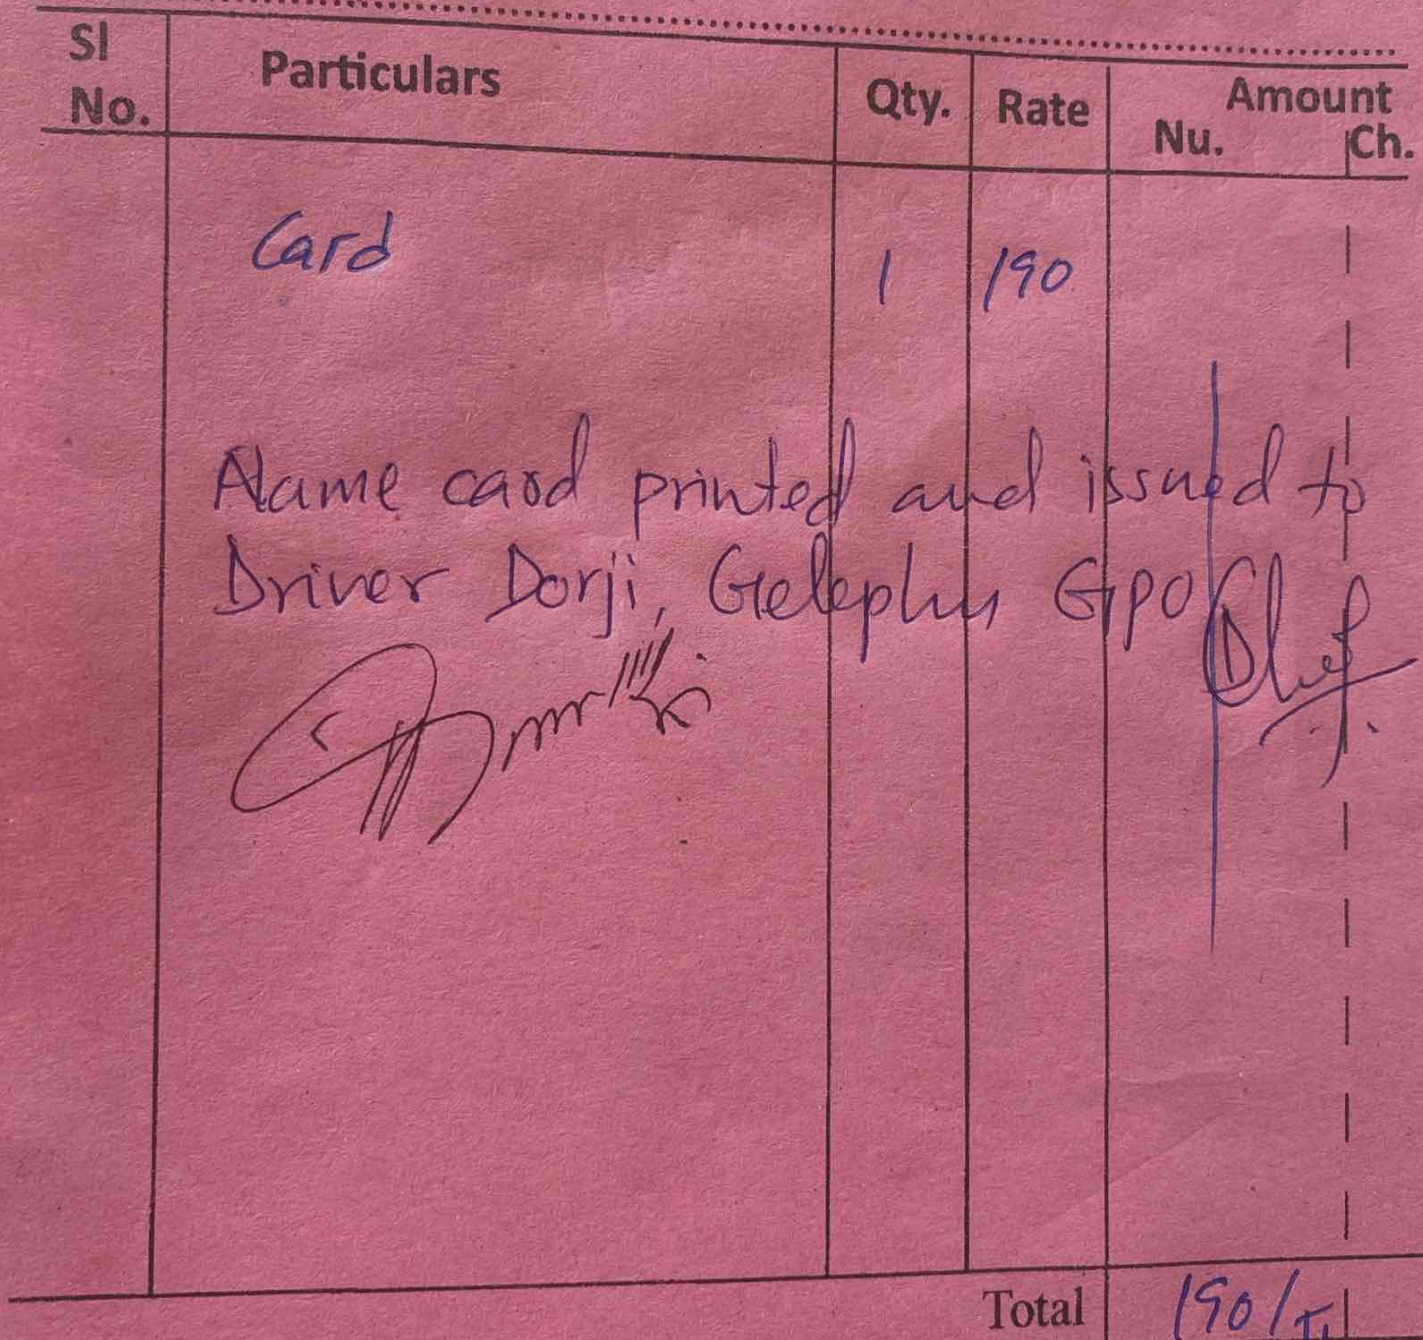 Sl No. Particulars Qty. Rate Amount
Nu. Ch.
Card 1 190
Name card printed and issued to
Driver Dorji, Gelephu GPO
Total 190/